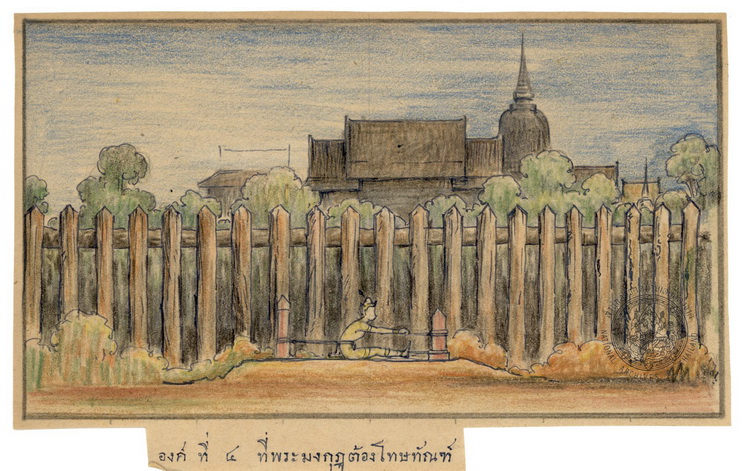 องค์ ที่ ๔ ที่พระมงกุฎต้องโทษทัณฑ์